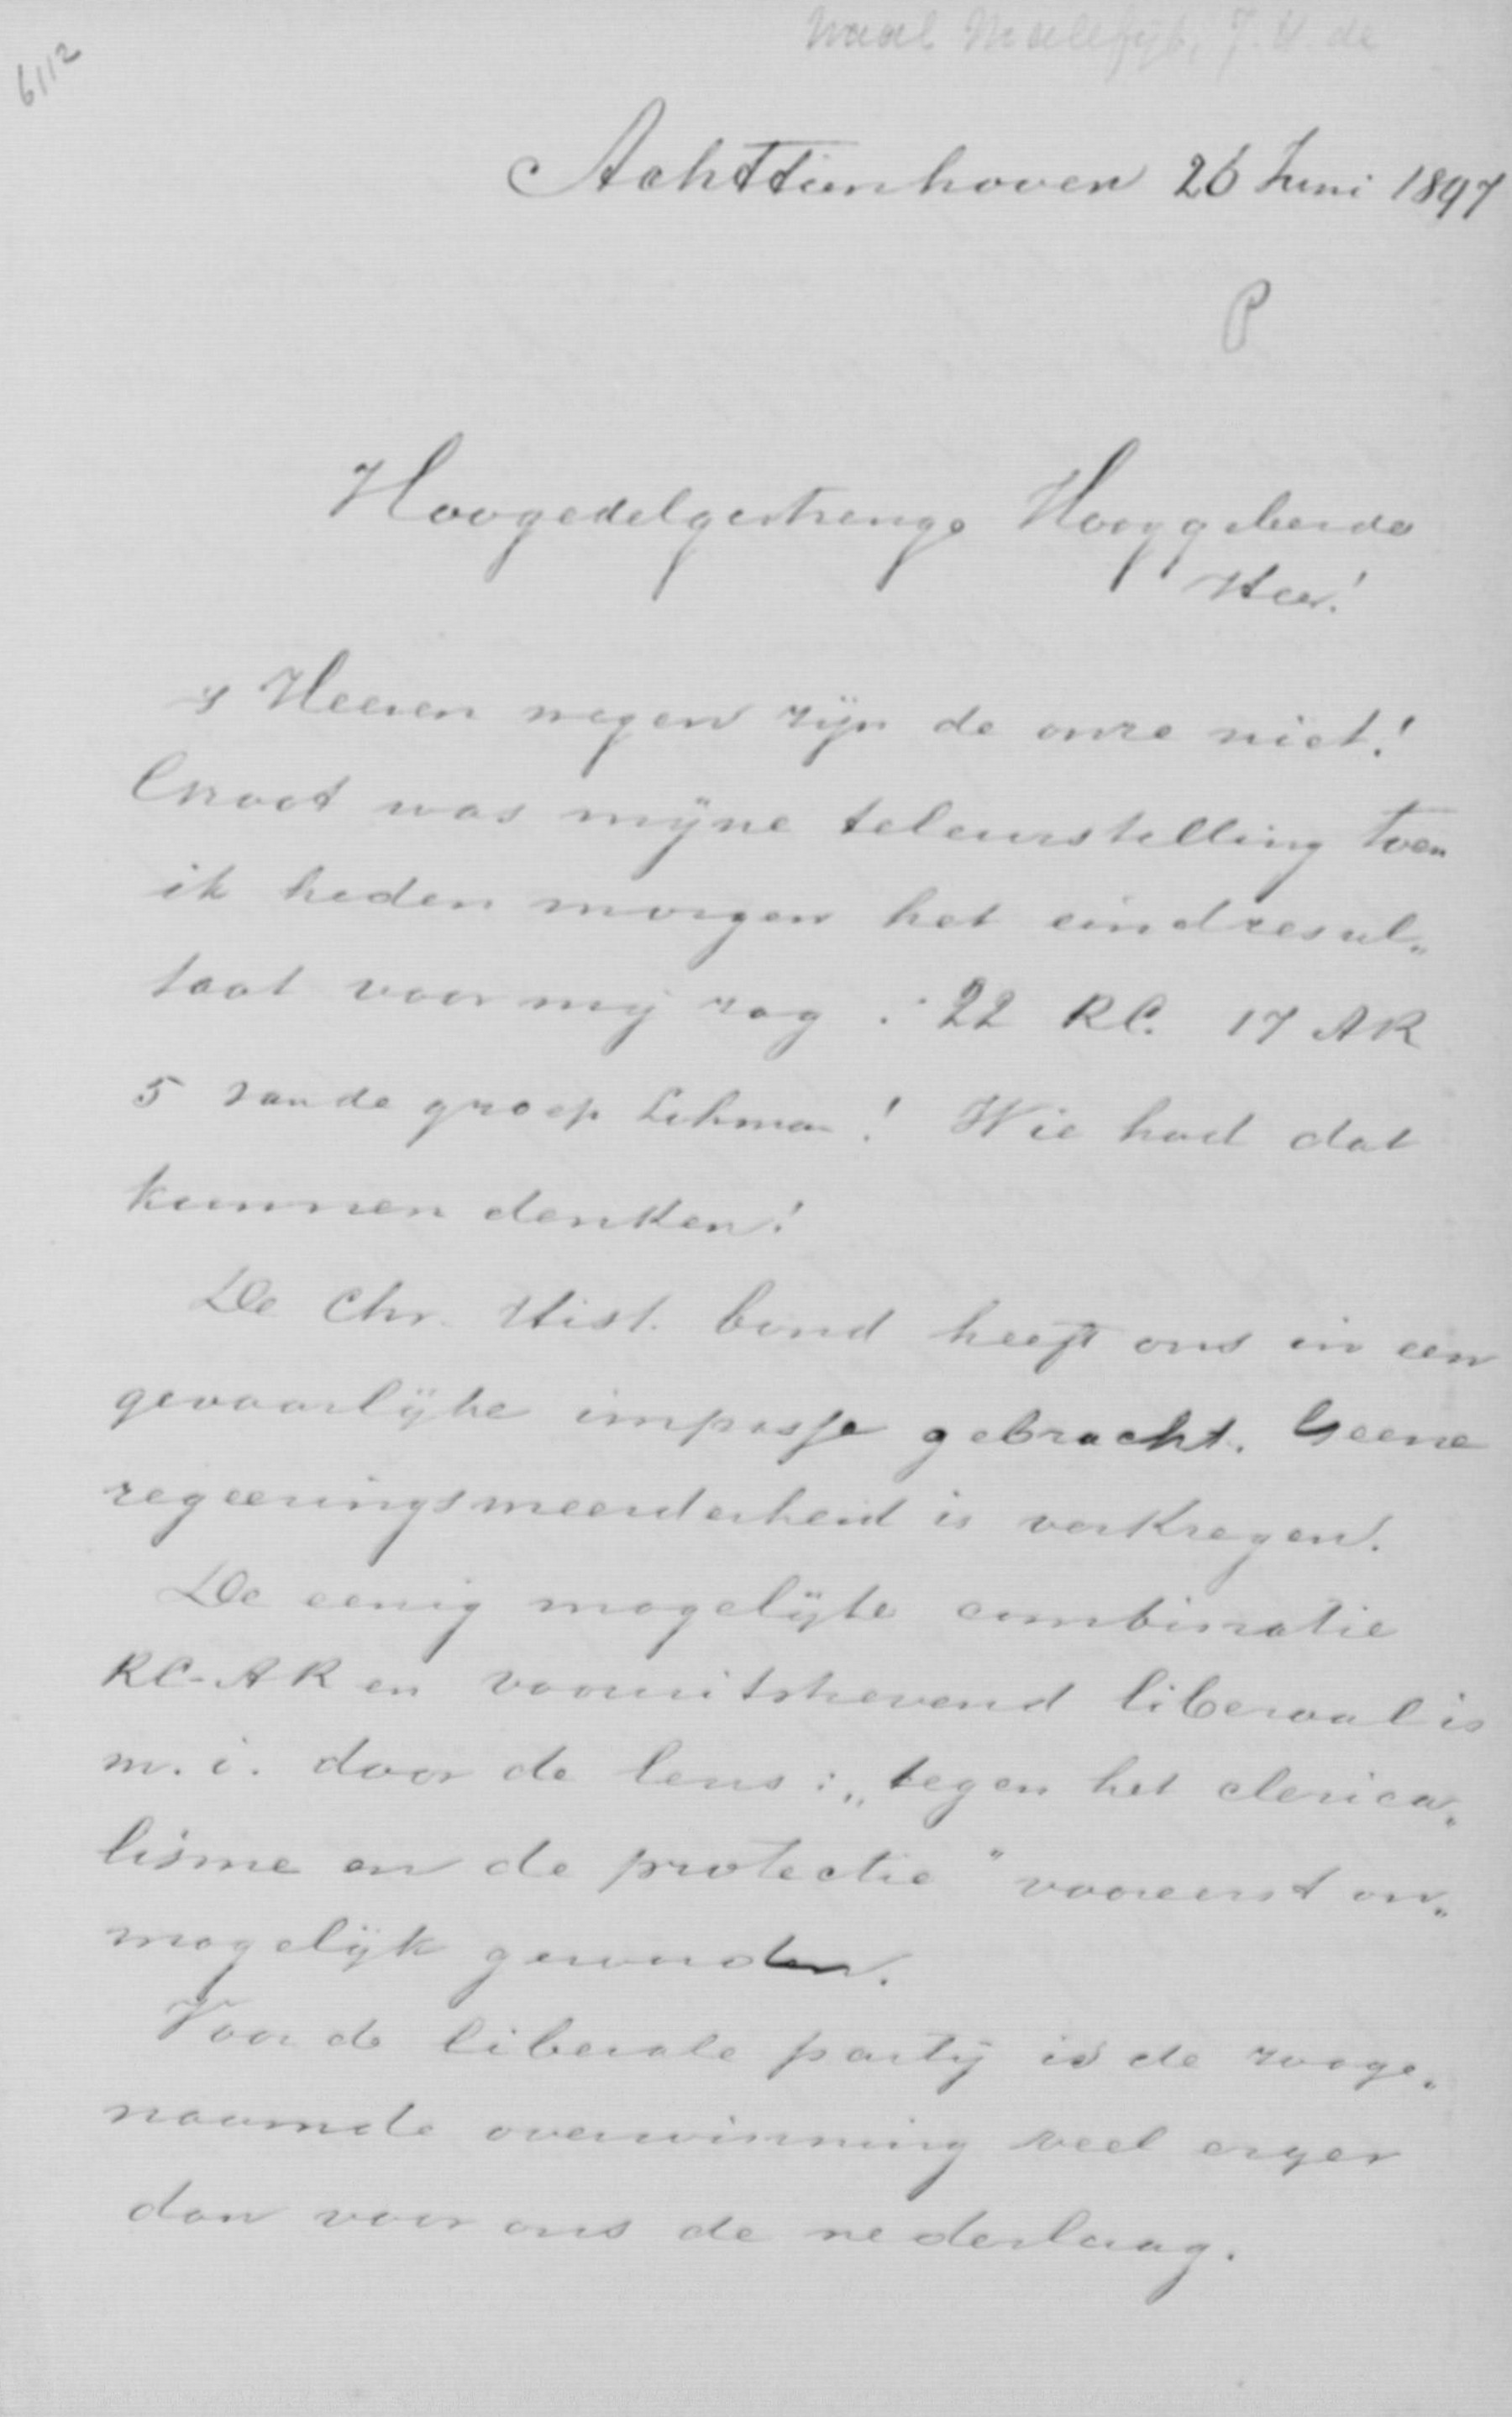 6112
Waal Malefijt, J. H. de
Achttienhoven 26 Juni 1897
P
Hoogedelgestrenge Hooggeleerde
Heer!
's Heeren wegen zijn de onze niet!
Groot was mijne teleurstelling toen
ik heden morgen het eindresul„
taat voor mij zag : 22 RC. 17 AR
5 van de groep Lohman! Wie had dat
kunnen denken!
De Chr. Hist. bond heeft ons in een
gevaarlijke impasse gebracht. Geene
regeeringsmeerderheid is verkregen.
De eenig mogelijke combinatie
RC-AR en vooruitstrevend liberaal is
m. i. door de leus: „tegen het clerica„
lisme en de protectie" vooreerst on„
mogelijk geworden.
Voor de liberale partij is de zooge„
naamde overwinning veel erger
dan voor ons de nederlaag.